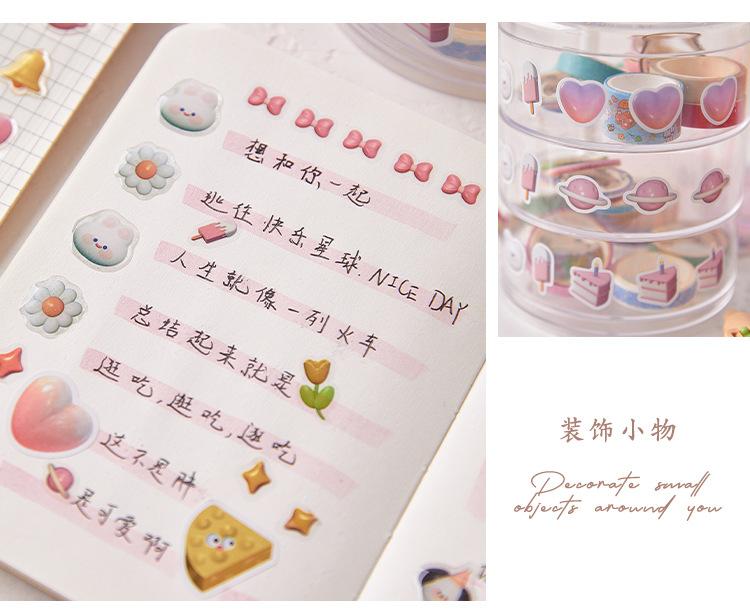 想和你一起
逃往快乐星球.NICE DAY
人生就像一列火车
总结起来就是
逛吃,逛吃,逛吃
这不是胖
是可爱啊
装饰小物
Decorate small
objects around you